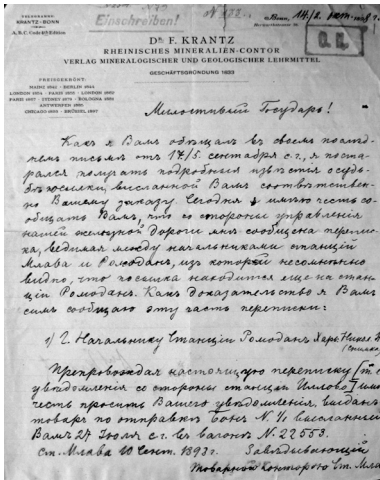 Einschreiben!
TELEGRAMME:
KRANTZ-BONN
A.B.C. Code 4th Edition
Bonn,
DR. F. KRANTZ
RHEINISCHES MINERALIEN-CONTOR
VERLAG MINERALOGISCHER UND GEOLOGISCHER LEHRMITTEL
GESCHÄFTSGRÜNDUNG 1833
PREISGEKRÖNT:
Милостивый Государь!
Какъ я Вамъ обѣщалъ въ своемъ послѣд-
немъ письмѣ отъ 17/5. сентября с.г., я поста-
рался получать подробныя извѣстія о судь-
бѣ посылки, высланной Вамъ соотвѣтствен-
но Вашему заказу. Сегодня имѣю честь со-
общать Вамъ, что со стороны управленія
нашей желѣзной дороги мнѣ сообщена перепис-
ка, ведимая между начальниками станцій
Млава и Ромоданъ, изъ которой несомнѣнно
видно, что посылка находится еще на стан-
ціи Ромоданъ. Какъ доказательство я Вамъ
симъ сообщаю эту часть переписки:
1) Г. Начальнику Станціи Ромоданъ Харк. Никол.
Препровождая настоящую переписку
увѣдомленія со стороны станціи Иллово
честь просить Вашего увѣдомленія, выданъ
товаръ по отправкѣ Боннъ N. 11 высланный
Вамъ 27 Іюля с.г. въ вагонѣ N. 22553.
ст. Млава 10 Сент. 1898 г. Завѣдывающій
Товарной конторою Ст. Млава